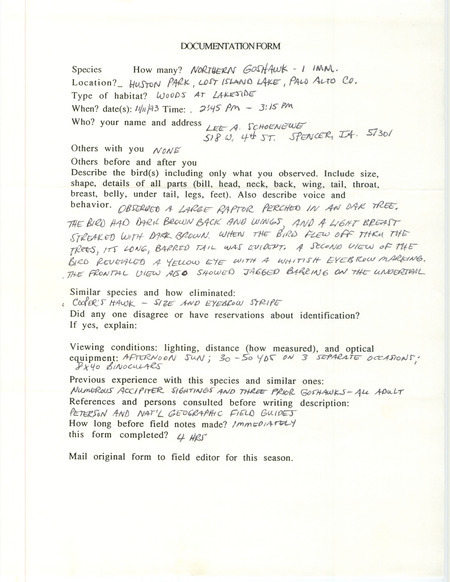 DOCUMENTATION FORM
Species How many? NORTHERN GOSHAWK - 1 IMM.
Location? HUSTON PARK, LOST ISLAND LAKE, PALO ALTO CO.
Type of habitat? WOODS AT LAKESIDE
When? date(s): 1/11/93 Time: . 2:45 PM - 3:15 PM
Who? your name and address LEE A. SCHOENEWE
518 W. 4TH ST. SPENCER, IA. 51301
Others with you NONE
Others before and after you
Describe the bird(s) including only what you observed. Include size,
shape, details of all parts (bill, head, neck, back, wing, tail, throat,
breast, belly, under tail, legs, feet). Also describe voice and
behavior. OBSERVED A LARGE RAPTOR PERCHED IN AN OAK TREE.
THE BIRD HAD DARK BROWN BACK AND WINGS, AND A LIGHT BREAST
STREAKED WITH DARK BROWN. WHEN THE BIRD FLEW OFF THRU THE
TREES, ITS LONG, BARRED TAIL WAS EVIDENT. A SECOND VIEW OF THE
BIRD REVEALED A YELLOW EYE WITH A WHITISH EYEBROW MARKING.
THE FRONTAL VIEW ALSO SHOWED JAGGED BARRING ON THE UNDERTAIL
Similar species and how eliminated:
COOPER'S HAWK - SIZE AND EYEBROW STRIPE
Did any one disagree or have reservations about identification?
If yes, explain:
Viewing conditions: lighting, distance (how measured), and optical
equipment: AFTERNOON SUN; 30-50 YDS ON 3 SEPARATE OCCASIONS;
8X40 BINOCULARS
Previous experience with this species and similar ones:
NUMEROUS ACCIPITER SIGHTINGS AND THREE PRIOR GOSHAWKS - ALL ADULT
References and persons consulted before writing description:
PETERSON AND NAT'L GEOGRAPHIC FIELD GUIDES
How long before field notes made? IMMEDIATELY
this form completed? 4 HRS
Mail original form to field editor for this season.